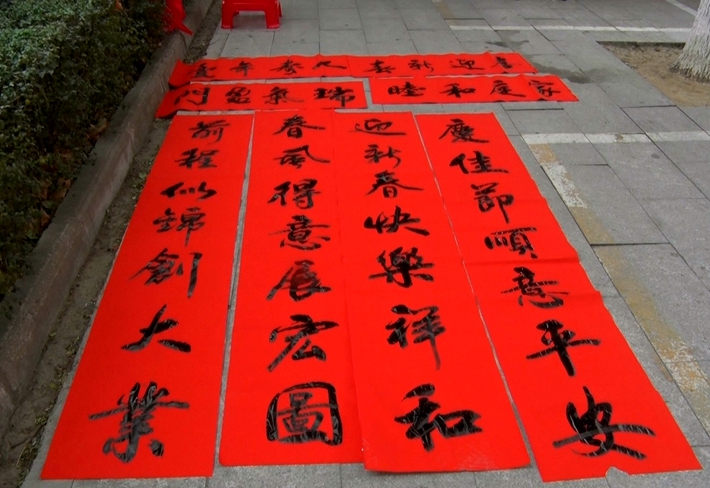 喜迎新春
人壽年豐
家庭和睦
瑞氣盈門
慶佳節順意平安
迎新春快樂祥和
春風得意展宏圖
前程似錦創大業